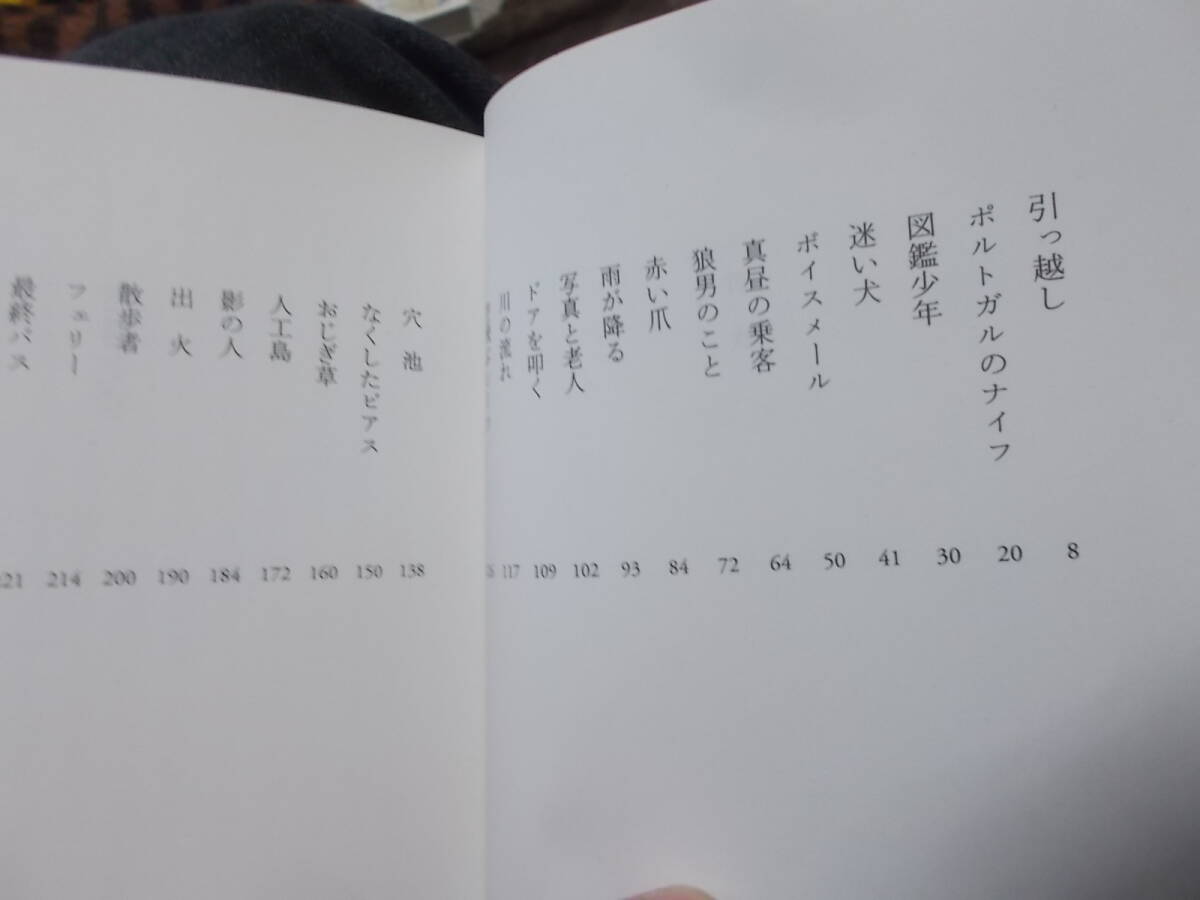 引っ越し 8
ポルトガルのナイフ 20
図鑑少年 30
迷い犬 41
ボイスメール 50
真昼の乗客 64
狼男のこと 72
赤い爪 84
雨が降る 93
写真と老人 102
ドアを叩く 109
川の流れ 117
穴池 138
なくしたピアス 150
おじぎ草 160
人工島 172
影の人 184
出火 190
散歩者 200
フェリー 214
最終バス 221